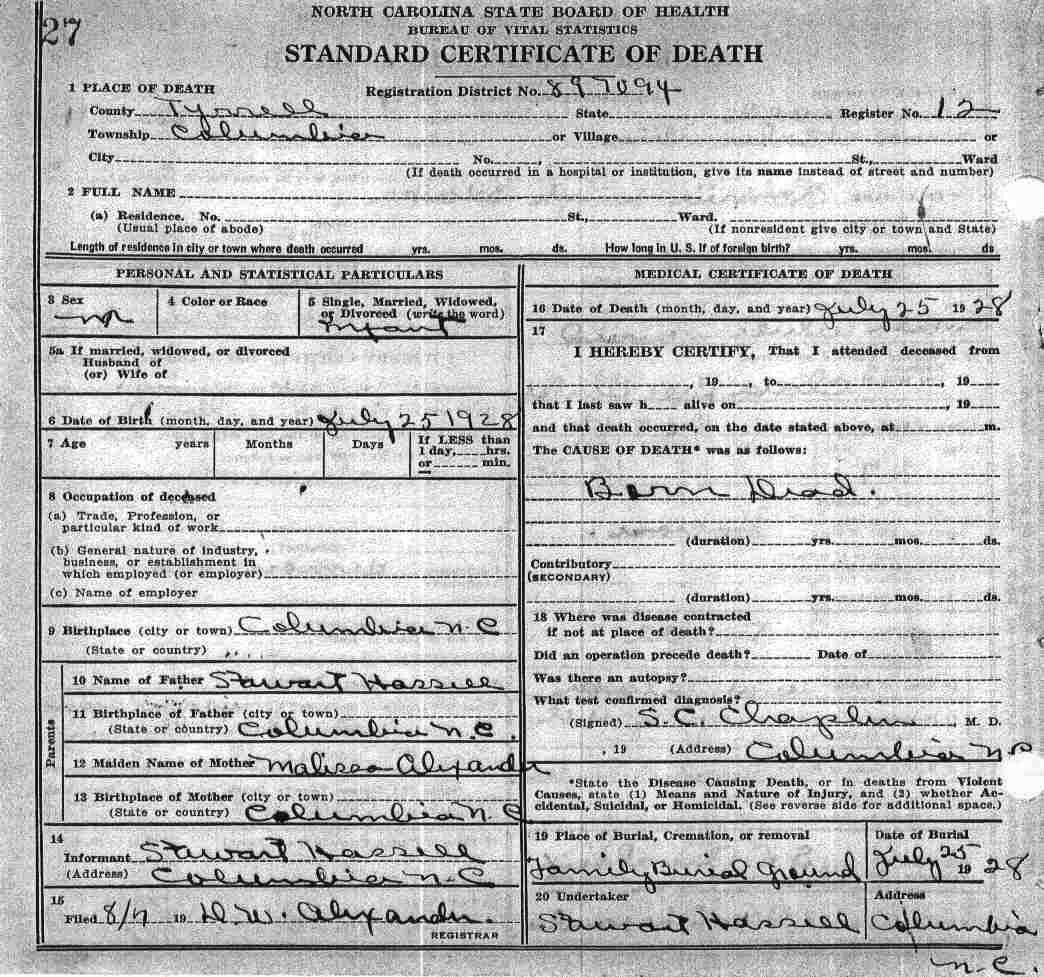 27
NORTH CAROLINA STATE BOARD OF HEALTH
BUREAU OF VITAL STATISTICS
STANDARD CERTIFICATE OF DEATH
1 PLACE OF DEATH Registration District No. 897094
County Tyrrell State Register No. 12
Township Columbia or Village or
City No. , St., Ward
(If death occurred in a hospital or institution, give its name instead of street and number)
2 FULL NAME
(a) Residence. No. St., Ward.
(Usual place of abode) (If nonresident give city or town and State)
Length of residence in city or town where death occurred yrs. mos. ds. How long in U. S. if of foreign birth? yrs. mos. ds
PERSONAL AND STATISTICAL PARTICULARS
3 Sex 4 Color or Race 5 Single, Married, Widowed,
or Divorced (write the word)
m Infant
5a If married, widowed, or divorced
Husband of
(or) Wife of
6 Date of Birth (month, day, and year) July 25 1928
7 Age years Months Days If LESS than
1 day, hrs.
or min.
8 Occupation of deceased
(a) Trade, Profession, or
particular kind of work
(b) General nature of industry,
business, or establishment in
which employed (or employer)
(c) Name of employer
9 Birthplace (city or town) Columbia N.C
(State or country)
Parents
10 Name of Father Stewart Hassell
11 Birthplace of Father (city or town)
(State or country) Columbia N.C.
12 Maiden Name of Mother Malissa Alexander
13 Birthplace of Mother (city or town)
(State or country) Columbia N.C
14
Informant Stewart Hassell
(Address) Columbia N.C
15
Filed 8/7 19 D.W. Alexander.
REGISTRAR
MEDICAL CERTIFICATE OF DEATH
16 Date of Death (month, day, and year) July 25 1928
17
I HEREBY CERTIFY, That I attended deceased from
, 19 , to , 19
that I last saw h alive on , 19
and that death occurred, on the date stated above, at m.
The CAUSE OF DEATH* was as follows:
Born Dead.
(duration) yrs. mos. ds.
Contributory
(SECONDARY)
(duration) yrs. mos. ds.
18 Where was disease contracted
if not at place of death?
Did an operation precede death? Date of
Was there an autopsy?
What test confirmed diagnosis?
(Signed) S.C. Chaplin, M. D.
, 19 (Address) Columbia N.C
*State the Disease Causing Death, or in deaths from Violent
Causes, state (1) Means and Nature of Injury, and (2) whether Ac-
cidental, Suicidal, or Homicidal. (See reverse side for additional space.)
19 Place of Burial, Cremation, or removal Date of Burial
Family Burial Ground July 25 1928
20 Undertaker Address
Stewart Hassell Columbia
N.C.